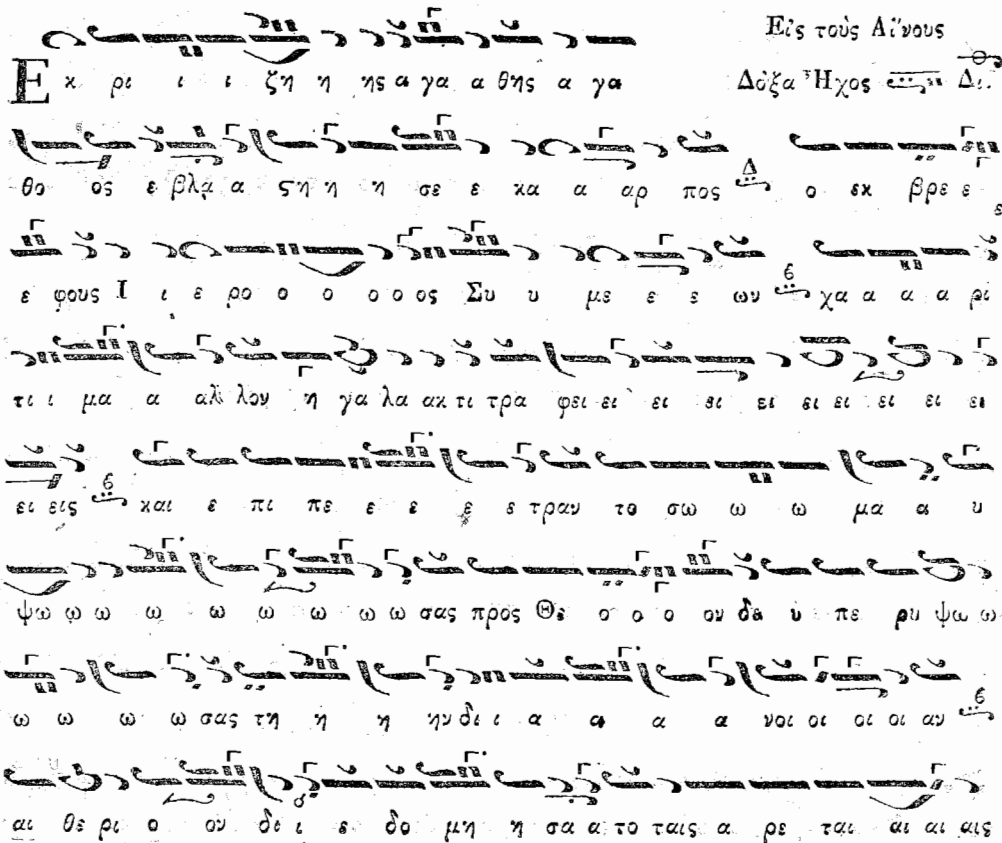 Εἰς τοὺς Αἴνους
Ε κ ρι ι ι ζη η ης α γα α θης α γα Δόξα Ἦχος Δι.
θο ος ε βλα α ςη η η σε ε κα α αρ πος Δ ο εκ βρε ε ε
ε φους Ι ι ε ρο ο ο ο ο ος Συ υ με ε ε ων 6 χα α α α ρι
τι ι μα α αλ λον η γα λα ακ τι τρα φει ει ει ει ει ει ει ει ει ει
ει εις 6 και ε πι πε ε ε ε ε τραν το σω ω ω μα α υ
ψω ω ω ω ω ω ω ω ω σας προς Θε ο ο ο ον δε υ πε ρυ ψω ω
ω ω ω ω σας τη η η ην δι ι α α α α νοι οι οι οι αν 6
αι θε ρι ο ον δι ι ε δο μη η σα α το ταις α ρε ται αι αι αις